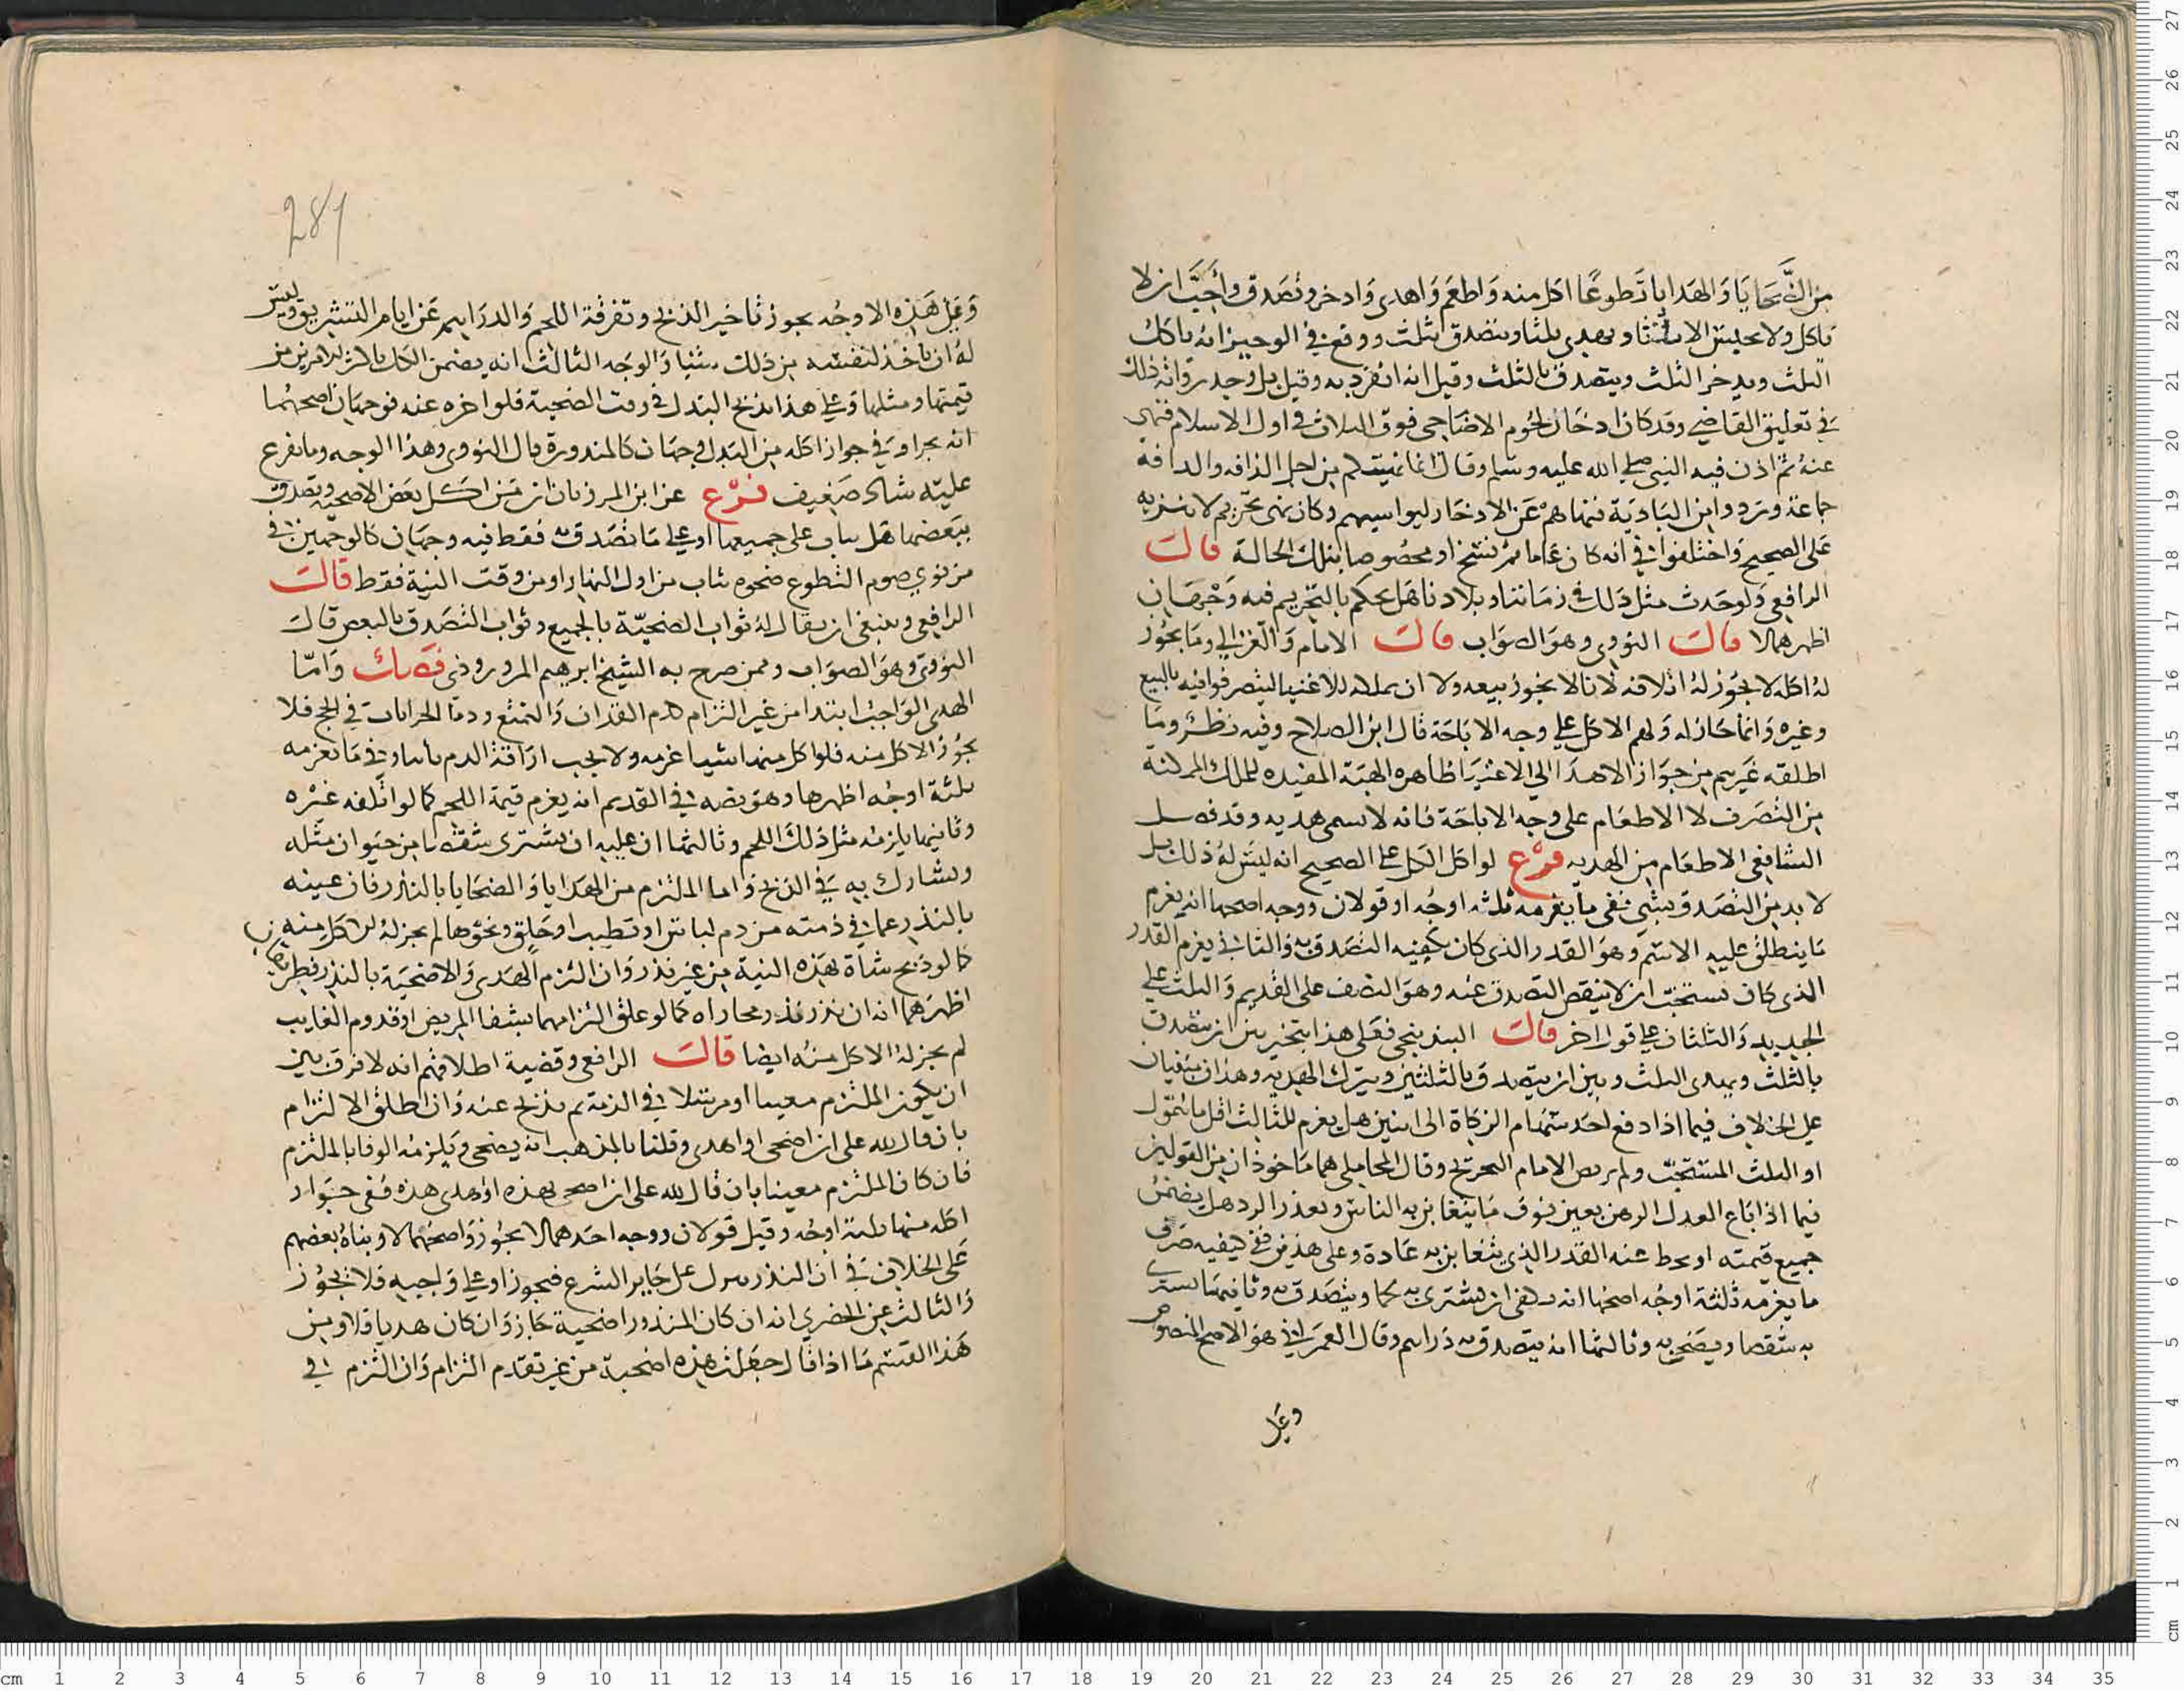 من الضحايا والهدايا تطوعا اكل منه واطعم واهدى وادخر وتصدق واحب ان لا
ياكل ولا يحبس الا ثلثا ويهدي ثلثا ويتصدق بثلث ووقع في الوجيز انه ياكل
الثلث ويدخر الثلث ويتصدق بالثلث وقيل انه انفرد به وقيل بل وجد روانه ذلك
في تعليق القاضي وقد كان ادخار لحوم الاضاحي فوق الثلاث في اول الاسلام فنهى
عنه ثم اذن فيه النبي صلى الله عليه وسلم وقال انما نهيتكم من اجل الدافه والدافة
جماعة وترد وا من البادية فنهاهم عن الادخار ليواسيهم وكان نهي تحريم لا تنزيه
على الصحيح واختلفوا في انه كان عاما ثم نسخ او مخصوصا بتلك الحالة قال
الرافعي ولو حدث مثل ذلك في زماننا وبلادنا هل يحكم بالتحريم فيه وجهان
اظهرهما لا قال النووي وهو الصواب قال الامام والغزالي وما يجوز
له اكله لا يجوز له اتلافه لانا لا يجوز بيعه ولا ان يملك للاغنيا ليتصرفوا فيه بالبيع
وغيره وانما جاز له ولهم الاكل على وجه الاباحة قال ابن الصلاح وفيه نظر وما
اطلقه غيرهم من جواز الاهدا الى الاغنيا ظاهره الهبة المفيده للملك الممكنة
من التصرف لا الاطعام على وجه الاباحة فانه لا يسمى هديه وقد فصل
الشافعي الاطعام من الهديه فرع لو اكل الكل على الصحيح انه ليس له ذلك بل
لا بد من التصدق بشي ففي ما يغرمه ثلثه اوجه او قولان ووجه اصحها انه يغرم
ما ينطلق عليه الاسم وهو القدر الذي كان يكفيه التصدق به والثاني يغرم القدر
الذي كان يستحب ان لا ينقص التصدق عنه وهو النصف على القديم والثلث على
الجديد والثلثان على قول اخر قال البندنيجي فعلى هذا يتخير بين ان يتصدق
بالثلث ويهدى الثلث وبين ان يتصدق بالثلثين ويترك الهديه وهذان مبنيان
على الخلاف فيما اذا دفع احد سهام الزكاة الى اثنين هل يغرم للثالث اقل ما يتمول
او الثلث المستحب ولم يرض الامام التخريج وقال المحاملي هما ماخوذان من القولين
فيما اذا باع العدل الرهن بعين فوق ما يتغابن به الناس وتعذر الرد هل يضمن
جميع قيمته او يحط عنه القدر الذي يتغابن به عادة وعلى هذين ففي كيفيه صرف
ما يغرمه ثلثة اوجه اصحها انه يكفي ان يشترى به لحما ويتصدق به وثانيها يشترى
به شقصا ويضحي به وثالثها انه يتصدق به دراهم وقال العمراني هو الاصح المنصوص
وعلى
281
وعلى هذه الاوجه يجوز تاخير الذبح وتفرقة اللحم والدراهم عن ايام التشريق وليس
له ان ياخذ لنفسه من ذلك شيئا والوجه الثالث انه يضمن الكل باكثر الامرين من
قيمتها ومثلها وعلى هذا يذبح البدل في وقت الضحية فلو اخره عنه فوجهان اصحهما
انه يجزا وفي جواز اكله من البدل وجهان كالمنذورة قال النووي وهذا الوجه وما تفرع
عليه شاذ ضعيف فرع عن ابن المرزبان ان من اكل بعض الاضحية وتصدق
ببعضها هل يثاب على جميعها او على ما تصدق به فقط فيه وجهان كالوجهين في
من نوى صوم التطوع ضحوه يثاب من اول النهار او من وقت النية فقط قال
الرافعي وينبغي ان يقال له ثواب التضحية بالجميع وثواب التصدق بالبعض قال
النووي وهو الصواب وممن صرح به الشيخ ابرهيم المروروذي فصل واما
الهدي الواجب ابتدا من غير التزام كدم القران والتمتع ودما الجبرانات في الحج فلا
يجوز الاكل منه فلو اكل منها شيا غرمه ولا يجب اراقة الدم ثانيا وفي ما يغرمه
ثلثة اوجه اظهرها وهو نصه في القديم انه يغرم قيمة اللحم كما لو اتلفه غيره
وثانيها يلزمه مثل ذلك اللحم وثالثها ان عليه ان يشترى شقصا من حيوان مثله
ويشارك به في الذبح واما الملتزم من الهدايا والضحايا بالنذر فان عينه
بالنذر عما في ذمته من دم لباس او تطيب او حلق ونحوها لم يجز له الاكل منه
كما لو ذبح شاة بهذه النية من غير نذر وان التزم الهدي والاضحية بالنذر
اظهرهما انه ان نذر نذر مجازاه كما لو علق التزامهما بشفا المريض او قدوم الغايب
لم يجز له الاكل منه ايضا قال الرافعي وقضية اطلاقهم انه لا فرق بين
ان يكون الملتزم معينا او مرسلا في الذمة ثم يذبح عنه وان اطلق الالتزام
بان قال لله على ان اضحي او اهدي وقلنا بالمذهب انه يصح ويلزمه الوفا بالملتزم
فان كان الملتزم معينا بان قال لله على ان اضحي بهذه او اهدى هذه ففي جواز
اكله منها ثلثة اوجه وقيل قولان ووجه احدهما لا يجوز واصحهما لا وبناه بعضهم
على الخلاف في ان النذر ينزل على جايز الشرع فيجوز او على واجبه فلا يجوز
والثالث عن الخضري انه ان كان المنذور اضحية جاز وان كان هديا فلا ومن
هذا القسم ما اذا قال جعلت هذه اضحية من غير تقدم التزام وان التزم في